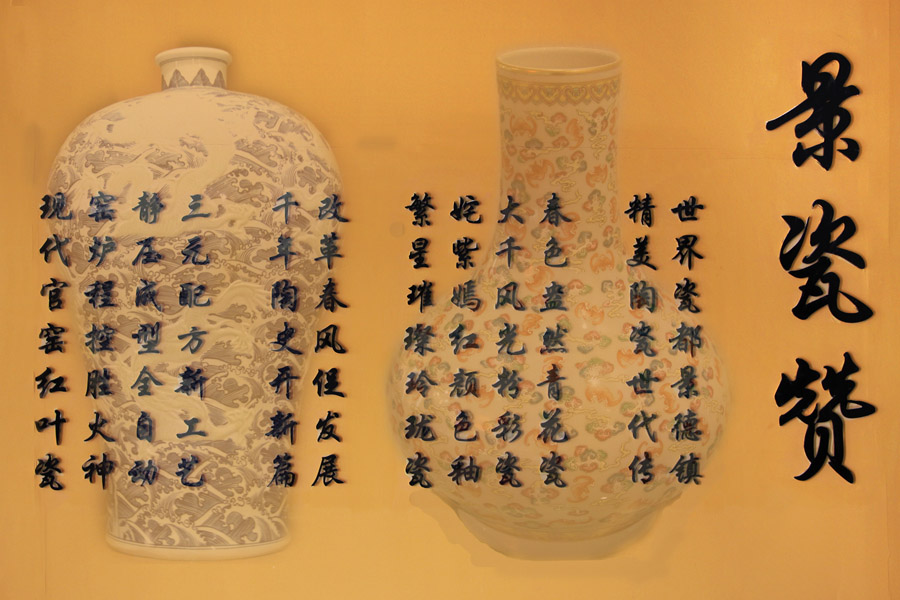 景瓷赞
世界瓷都景德镇
精美陶瓷世代传
春色盎然青花瓷
大千风光粉彩瓷
姹紫嫣红颜色釉
繁星璀璨玲珑瓷
改革春风促发展
千年陶史开新篇
三元配方新工艺
静压成型全自动
窑炉程控胜火神
现代官窑红叶瓷